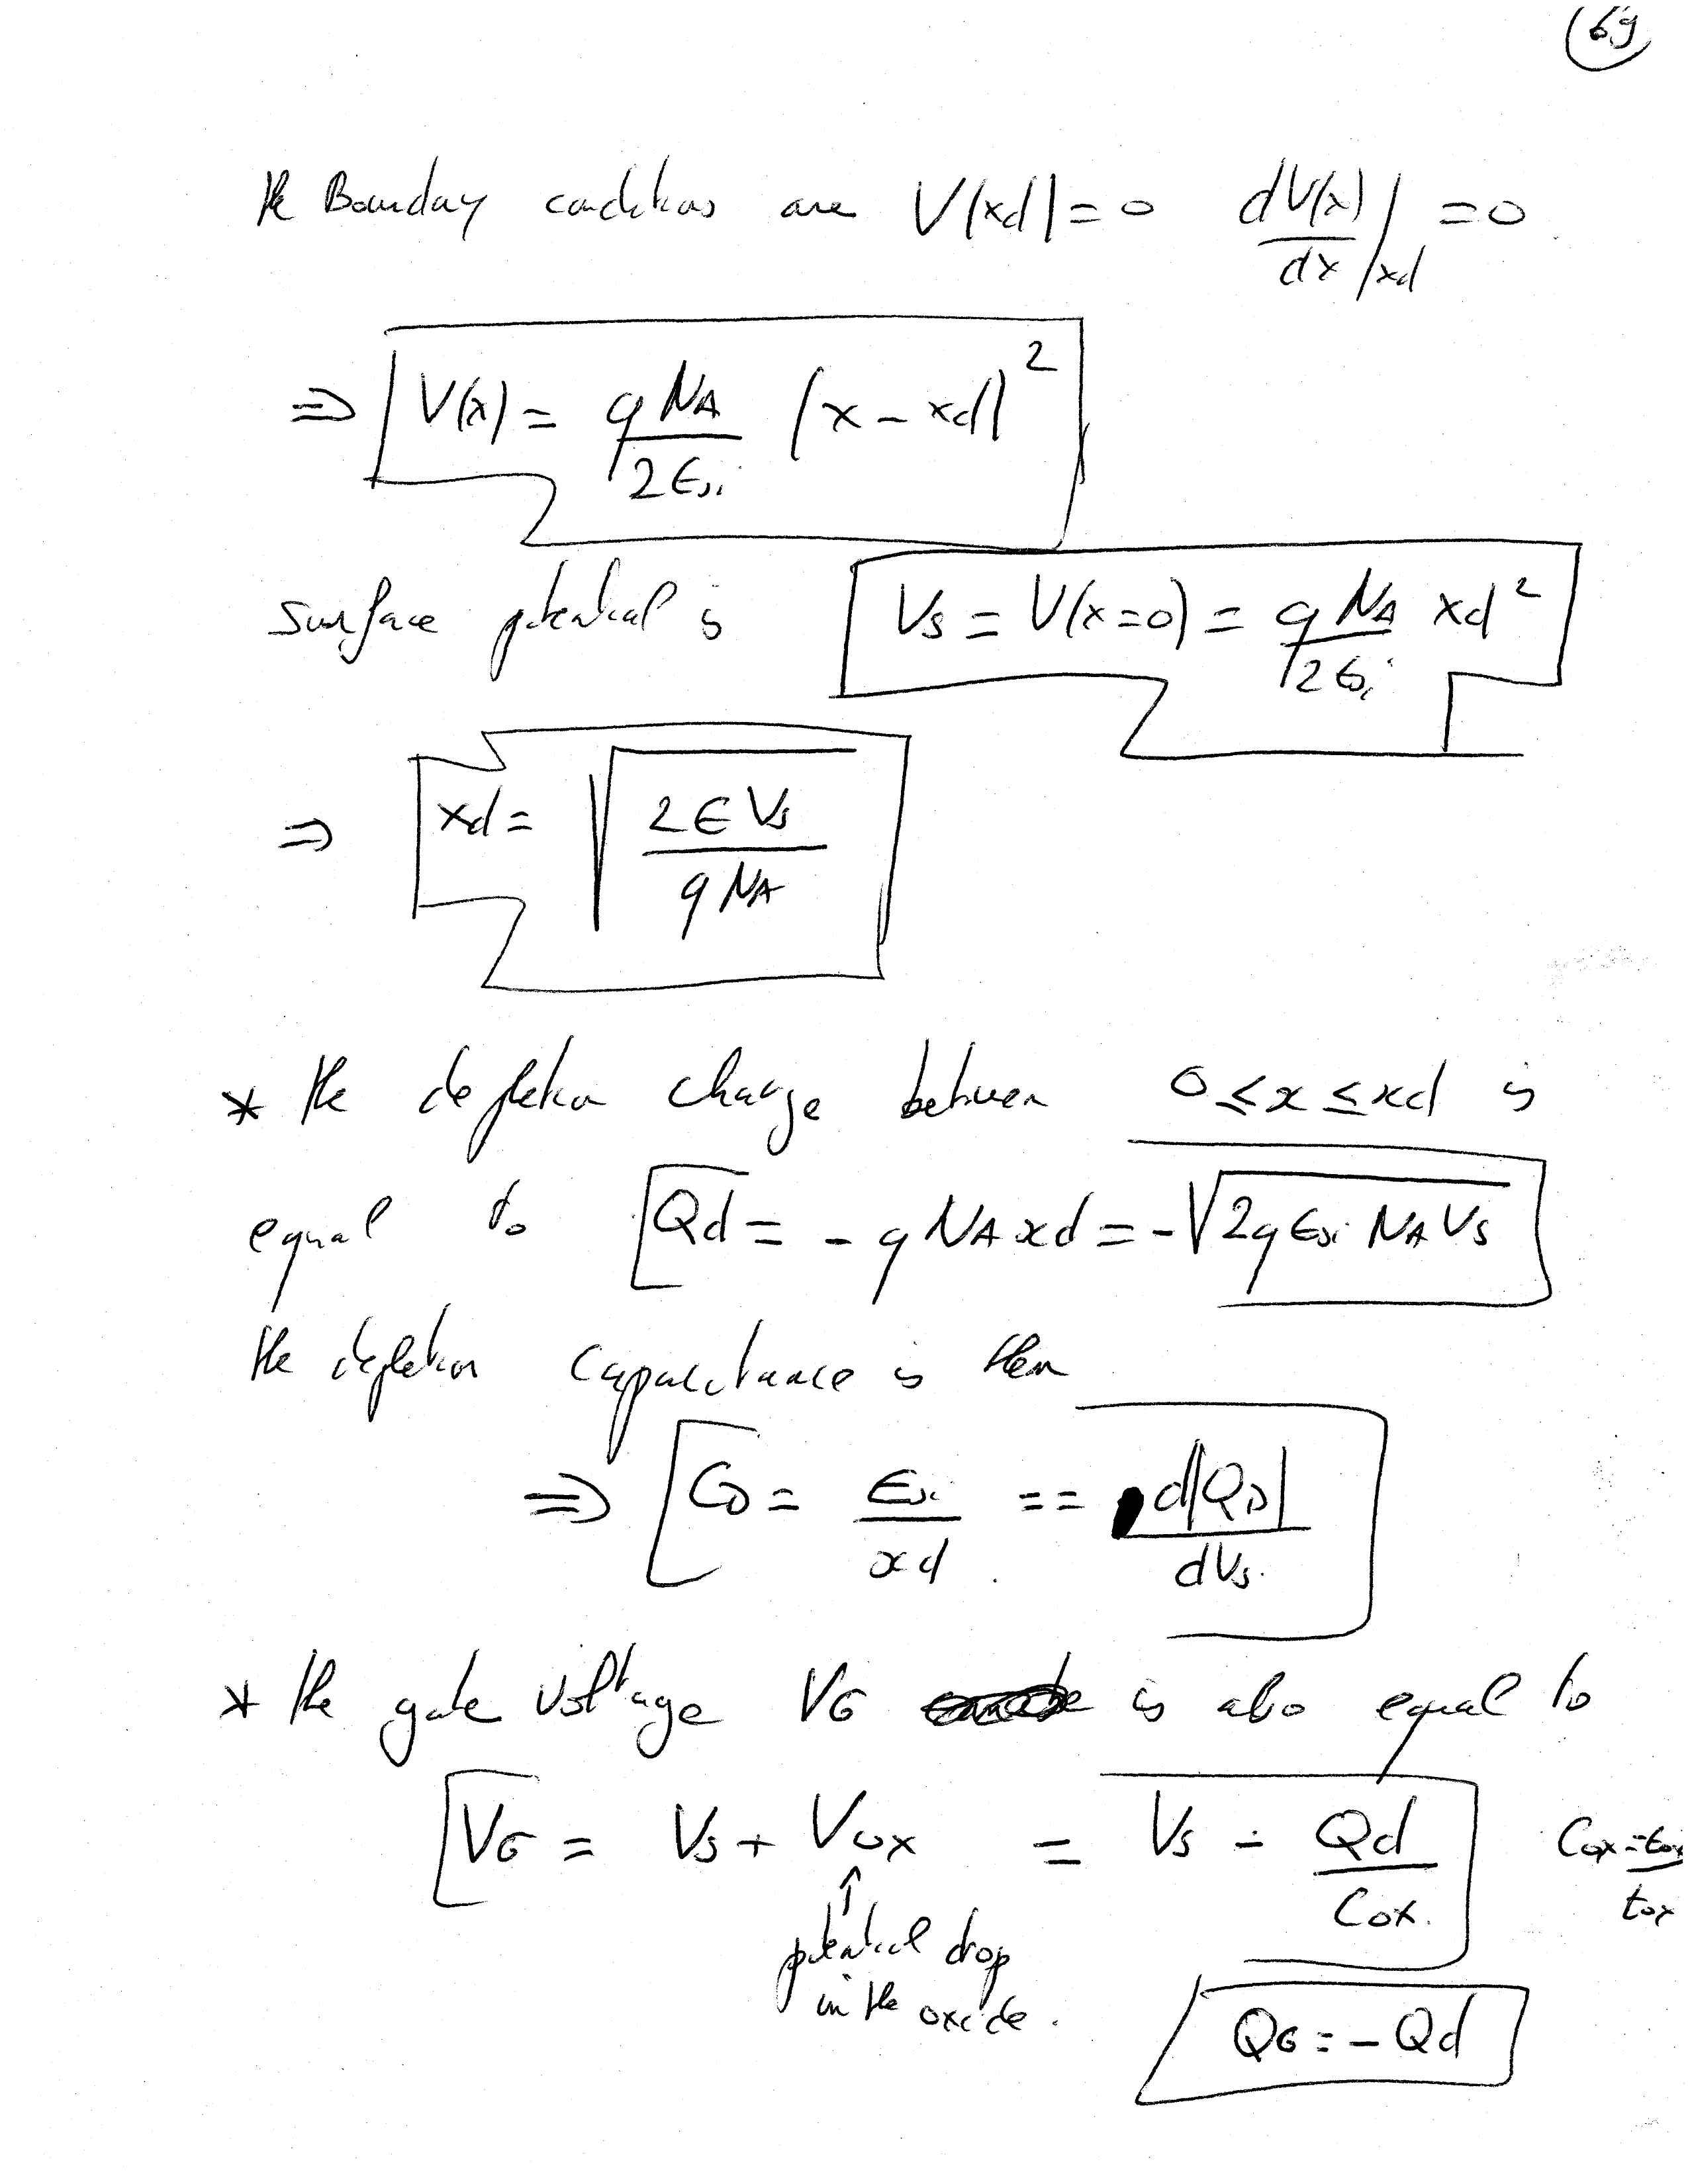 69
the Bounday conditions are V(xd)=0 dV(x)/dx|xd =0
⇒ V(x) = qNA/2Esi (x - xd)²
Surface potential is Vs = V(x=0) = qNA/2Esi xd²
⇒ xd = √(2EVs/qNA)
* the depletion charge between 0≤x≤xd is
equal to Qd = - qNAxd = -√(2qEsiNAVs)
the depletion capacitance is then
⇒ CD = Esi/xd == d|QD|/dVs.
* the gate voltage VG is also equal to
VG = Vs + Vox = Vs - Qd/Cox. Cox = Eox/tox
↑
potential drop
in the oxide.
QG = - Qd